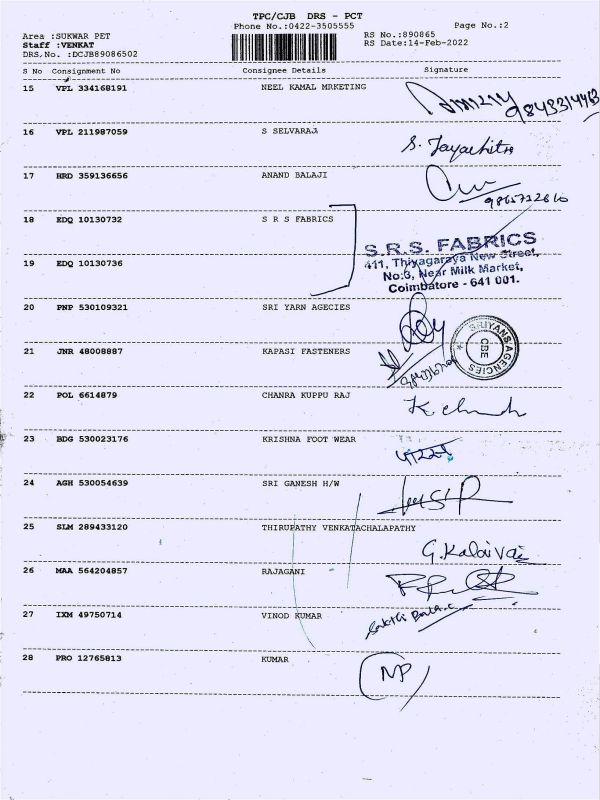 TPC/CJB DRS - PCT
Phone No.:0422-3505555
Page No.:2
Area :SUKWAR PET
RS No.:890865
Staff :VENKAT
RS Date:14-Feb-2022
DRS.No. :DCJB89086502
S No Consignment No Consignee Details Signature
15 VPL 334168191 NEEL KAMAL MRKETING
9843314413
16 VPL 211987059 S SELVARAJ
S. Jayachitra
17 HRD 359136656 ANAND BALAJI
18 EDQ 10130732 S R S FABRICS
S.R.S. FABRICS
411, Thiyagaraya New Street,
No:3, Near Milk Market,
Coimbatore - 641 001.
19 EDQ 10130736
20 PNP 530109321 SRI YARN AGECIES
21 JNR 48008887 KAPASI FASTENERS
SRIYANS AGENCIES
CBE
22 POL 6614879 CHANRA KUPPU RAJ
23 BDG 530023176 KRISHNA FOOT WEAR
24 AGH 530054639 SRI GANESH H/W
25 SLM 289433120 THIRUPATHY VENKATACHALAPATHY
G. Kalaivai
26 MAA 564204857 RAJAGANI
27 IXM 49750714 VINOD KUMAR
28 PRO 12765813 KUMAR
NP